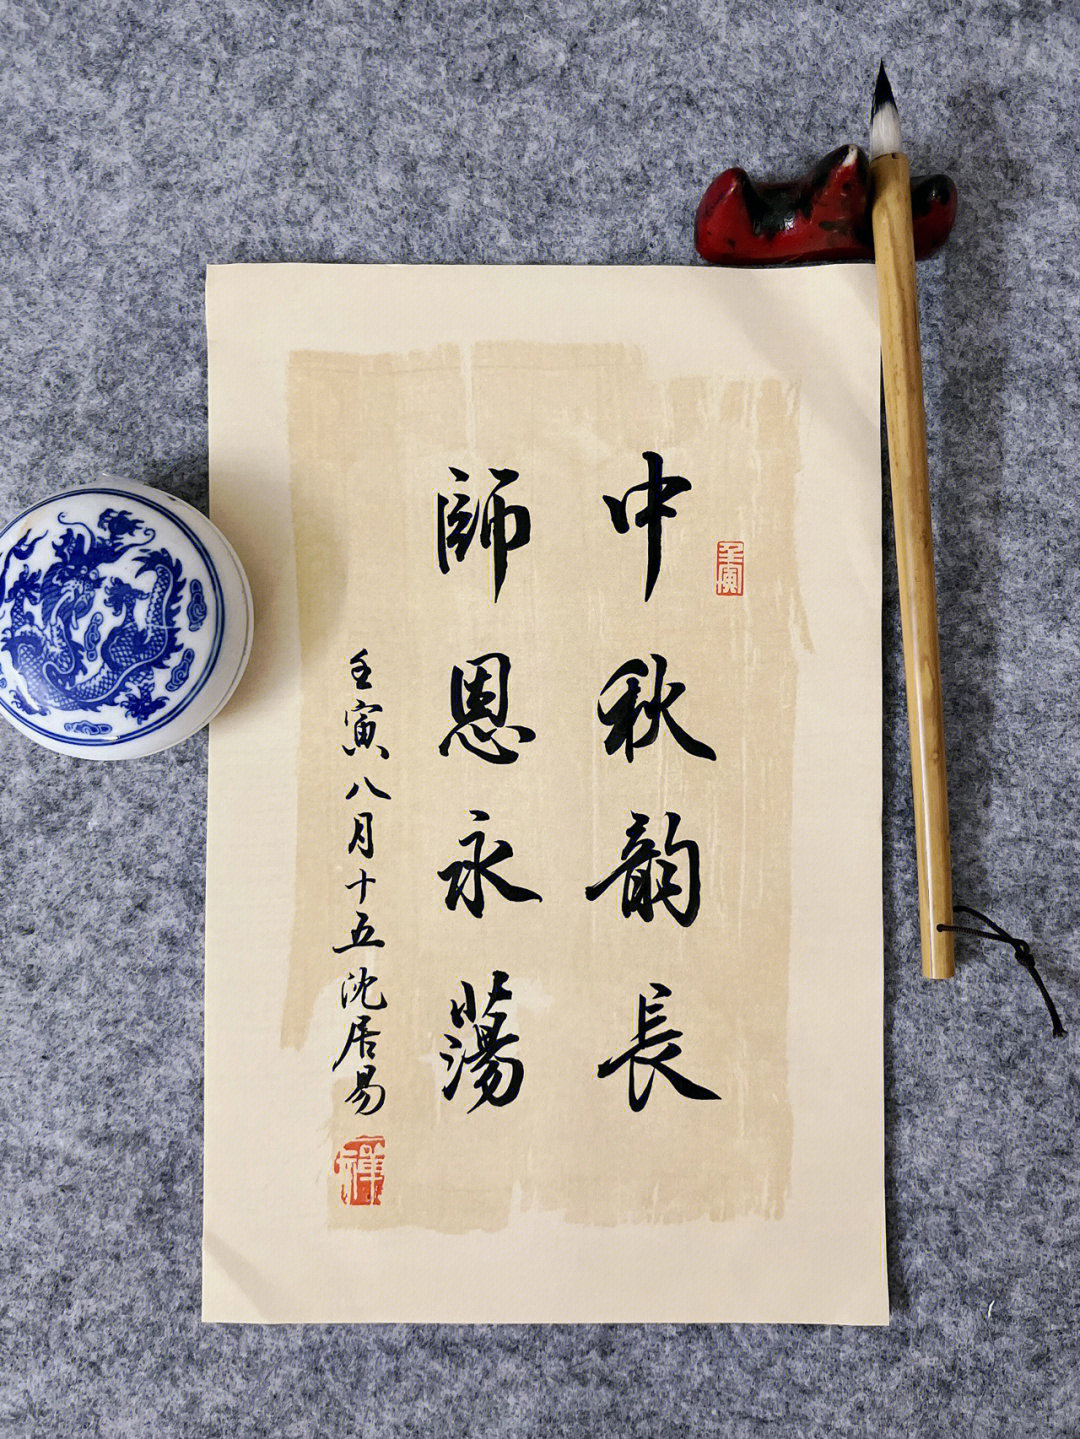 中秋韵長
壬寅
師恩永蕩
壬寅八月十五沈居易